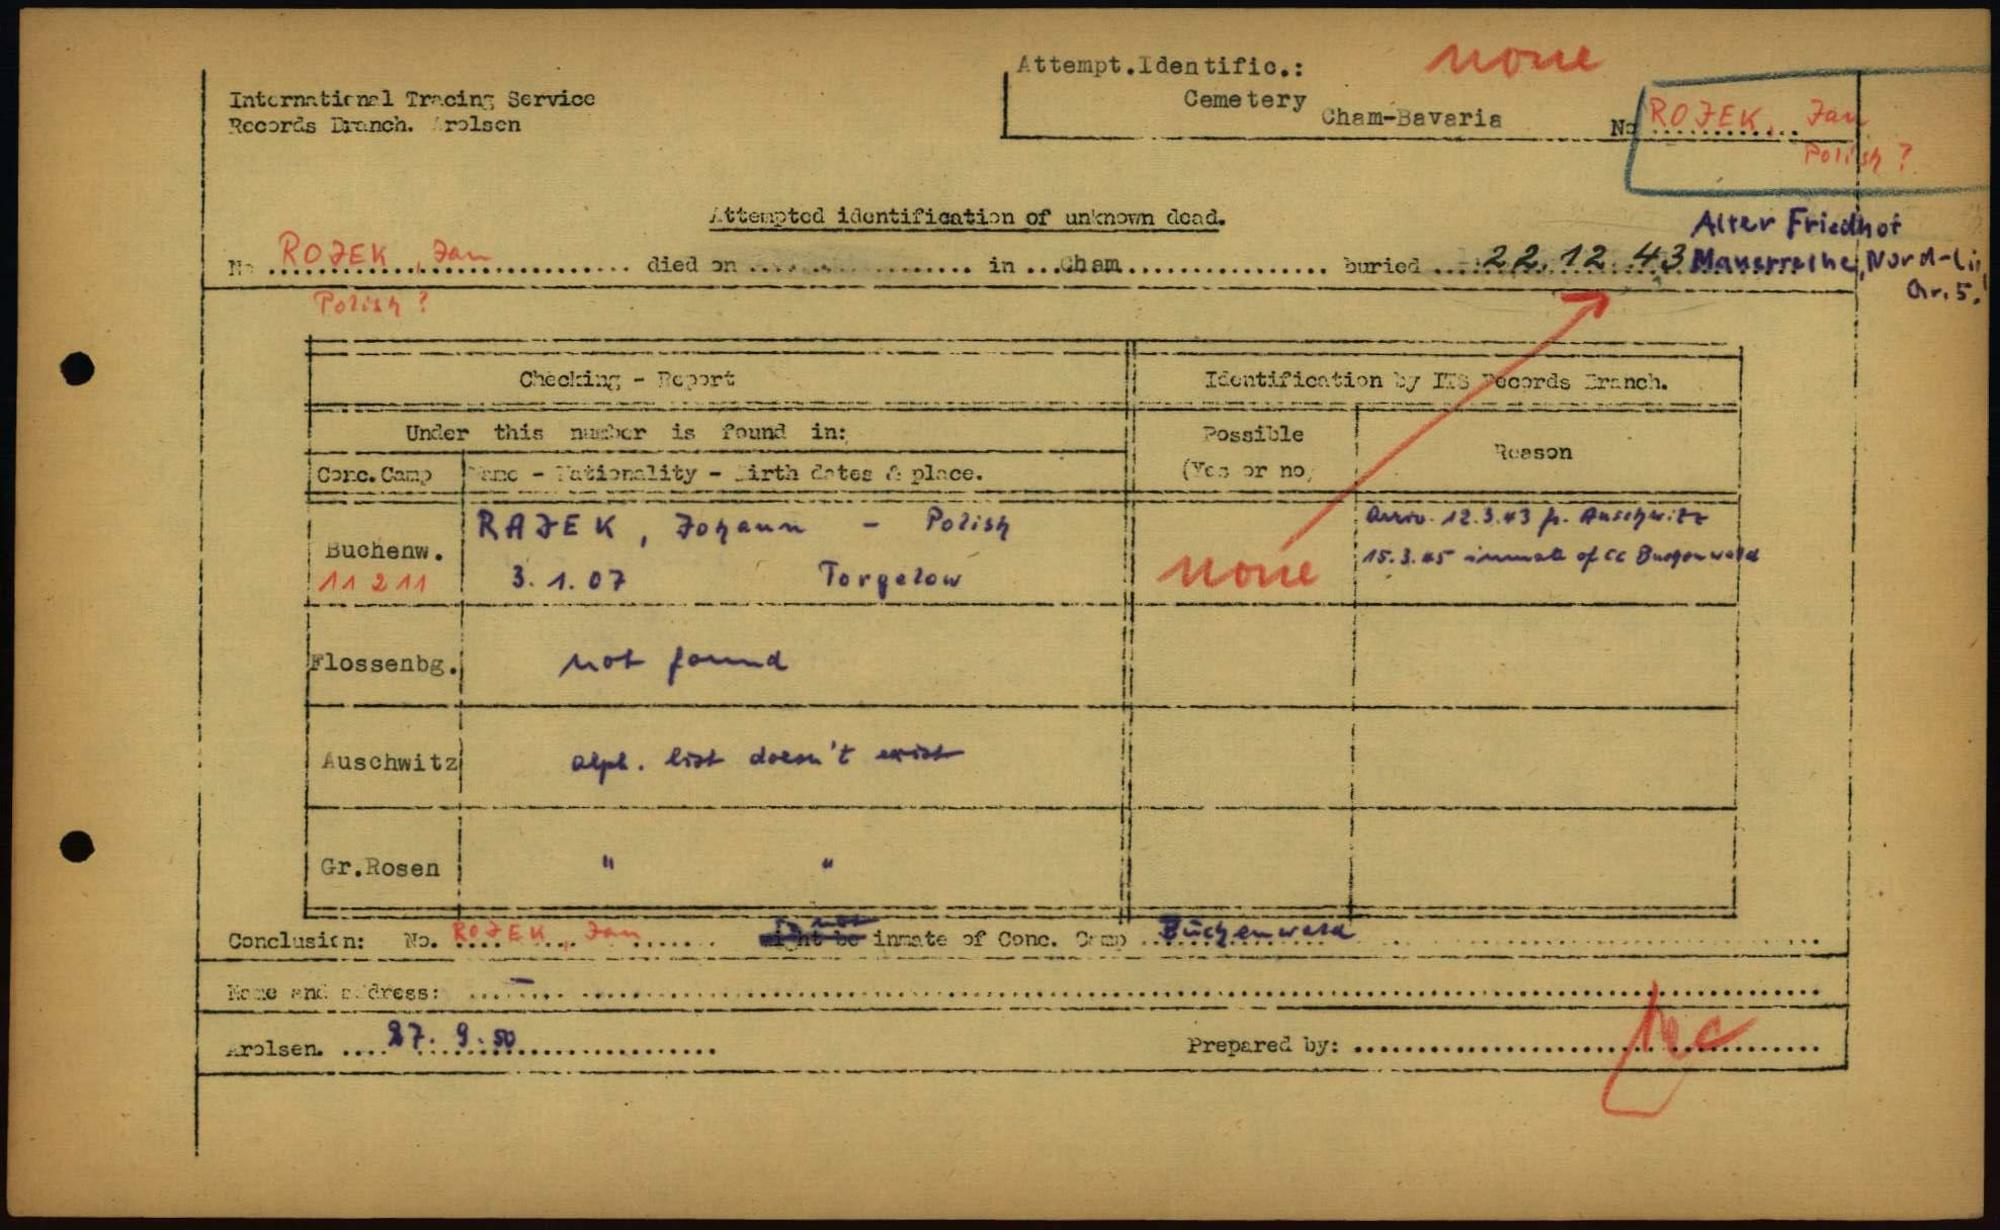 Attempt.Identific.: none
International Tracing Service
Cemetery Cham-Bavaria No ROJEK, Jan
Records Branch. Arolsen
Polish ?
Attempted identification of unknown dead.
Alter Friedhof
No ROJEK, Jan died on in Cham buried 22.12.43 Mauerreihe, Nord-Li,
Polish ?
Gr. 5.
Checking - Report
Identification by ITS Records Branch.
Under this number is found in:
Possible
Reason
Conc.Camp Name - Nationality - Birth dates & place.
(Yes or no)
RAJEK, Johann - Polish
Arriv. 12.3.43 fr. Auschwitz
Buchenw.
none
15.3.45 inmate of CC
11 211 3.1.07 Torgelow
Flossenbg. not found
Auschwitz alph. list doesn't exist
Gr.Rosen " "
not
Conclusion: No. ROJEK, Jan might be inmate of Conc. Camp Buchenwald
Name and address: -
Arolsen. 27. 9. 50 Prepared by: